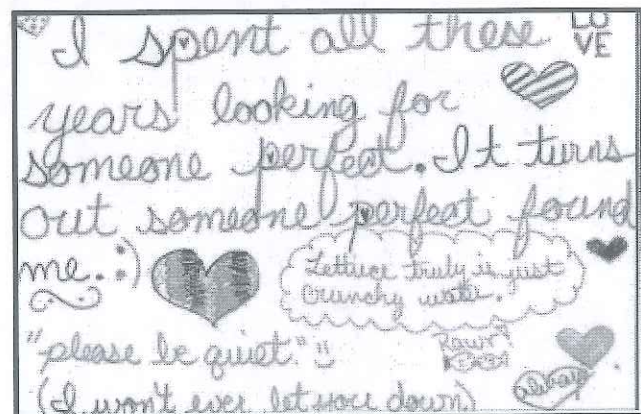 I spent all these
LO
VE
years looking for
someone perfect. It turns
out someone perfect found
me. :)
Lettuce truly is just
Crunchy water.
"please be quiet"
Rawr
always
(I won't ever let you down)